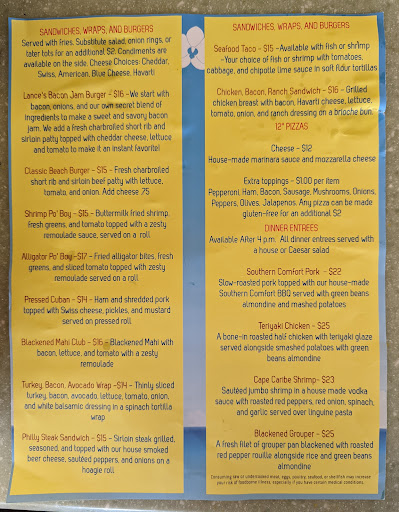 SANDWICHES, WRAPS, AND BURGERS
Served with fries. Substitute salad, onion rings, or
tater tots for an additional $2. Condiments are
available on the side. Cheese Choices: Cheddar,
Swiss, American, Blue Cheese, Havarti
Lance's Bacon Jam Burger - $16 -We start with
bacon, onions, and our own secret blend of
ingredients to make a sweet and savory bacon
jam. We add a fresh charbroiled short rib and
sirloin patty topped with cheddar cheese, lettuce
and tomato to make it an instant favorite!
Classic Beach Burger - $15 - Fresh charbroiled
short rib and sirloin beef patty with lettuce,
tomato, and onion. Add cheese .75
Shrimp Po' Boy - $15 - Buttermilk fried shrimp,
fresh greens, and tomato topped with a zesty
remoulade sauce, served on a roll
Alligator Po' Boy -$17 - Fried alligator bites, fresh
greens, and sliced tomato topped with zesty
remoulade served on a roll.
Pressed Cuban - $14 - Ham and shredded pork
topped with Swiss cheese, pickles, and mustard
served on pressed roll
Blackened Mahi Club - $16 -Blackened Mahi with
bacon, lettuce, and tomato with a zesty
remoulade
Turkey, Bacon, Avocado Wrap -$14 - Thinly sliced
turkey, bacon, avocado, lettuce, tomato, onion,
and white balsamic dressing in a spinach tortilla
wrap
Philly Steak Sandwich - $15 - Sirloin steak grilled,
seasoned, and topped with our house smoked
beer cheese, sautéed peppers, and onions on a
hoagie roll
SANDWICHES, WRAPS, AND BURGERS
Seafood Taco - $15 -Available with fish or shrimp
-Your choice of fish or shrimp with tomatoes,
cabbage, and chipotle lime sauce in soft flour tortillas
Chicken, Bacon, Ranch Sandwich - $16 - Grilled
chicken breast with bacon, Havarti cheese, lettuce,
tomato, onion, and ranch dressing on a brioche bun.
12" PIZZAS
Cheese - $12
House-made marinara sauce and mozzarella cheese
Extra toppings - $1.00 per item
Pepperoni, Ham, Bacon, Sausage, Mushrooms, Onions,
Peppers, Olives, Jalapenos. Any pizza can be made
gluten-free for an additional $2
DINNER ENTREES
Available After 4 p.m. All dinner entrees served with
a house or Caesar salad.
Southern Comfort Pork - $22
Slow-roasted pork topped with our house-made
Southern Comfort BBQ served with green beans
almondine and mashed potatoes
Teriyaki Chicken - $25
A bone-in roasted half chicken with teriyaki glaze
served alongside smashed potatoes with green
beans almondine
Cape Caribe Shrimp- $23
Sautéed jumbo shrimp in a house made vodka
sauce with roasted red peppers, red onion, spinach,
and garlic served over linguine pasta
Blackened Grouper - $25
A fresh filet of grouper pan blackened with roasted
red pepper rouille alongside rice and green beans
almondine
Consuming raw or undercooked meat, eggs, poultry, seafood, or shellfish may increase
your risk of foodborne illness, especially if you have certain medical conditions.